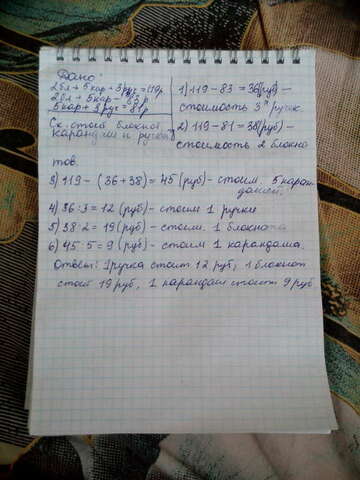 Дано:
2бл + 5кар + 3руч = 119р.
2бл + 5кар - 83р
5кар + 3руч = 81р
Ск. стоит блокнот,
карандаш и ручка
1) 119-83 = 36(руб) -
стоимость 3х ручек
2) 119-81 = 38(руб) -
стоимость 2 блокно
тов.
3) 119 - (36+38) = 45 (руб) - стоим. 5 каран-
дашей.
4) 36:3 = 12 (руб) - стоим 1 ручки
5) 38:2 = 19 (руб) - стоим. 1 блокнота
6) 45:5 = 9 (руб) - стоим 1 карандаша.
Ответ: 1ручка стоит 12 руб, 1 блокнот
стоит 19 руб, 1 карандаш стоит 9 руб.